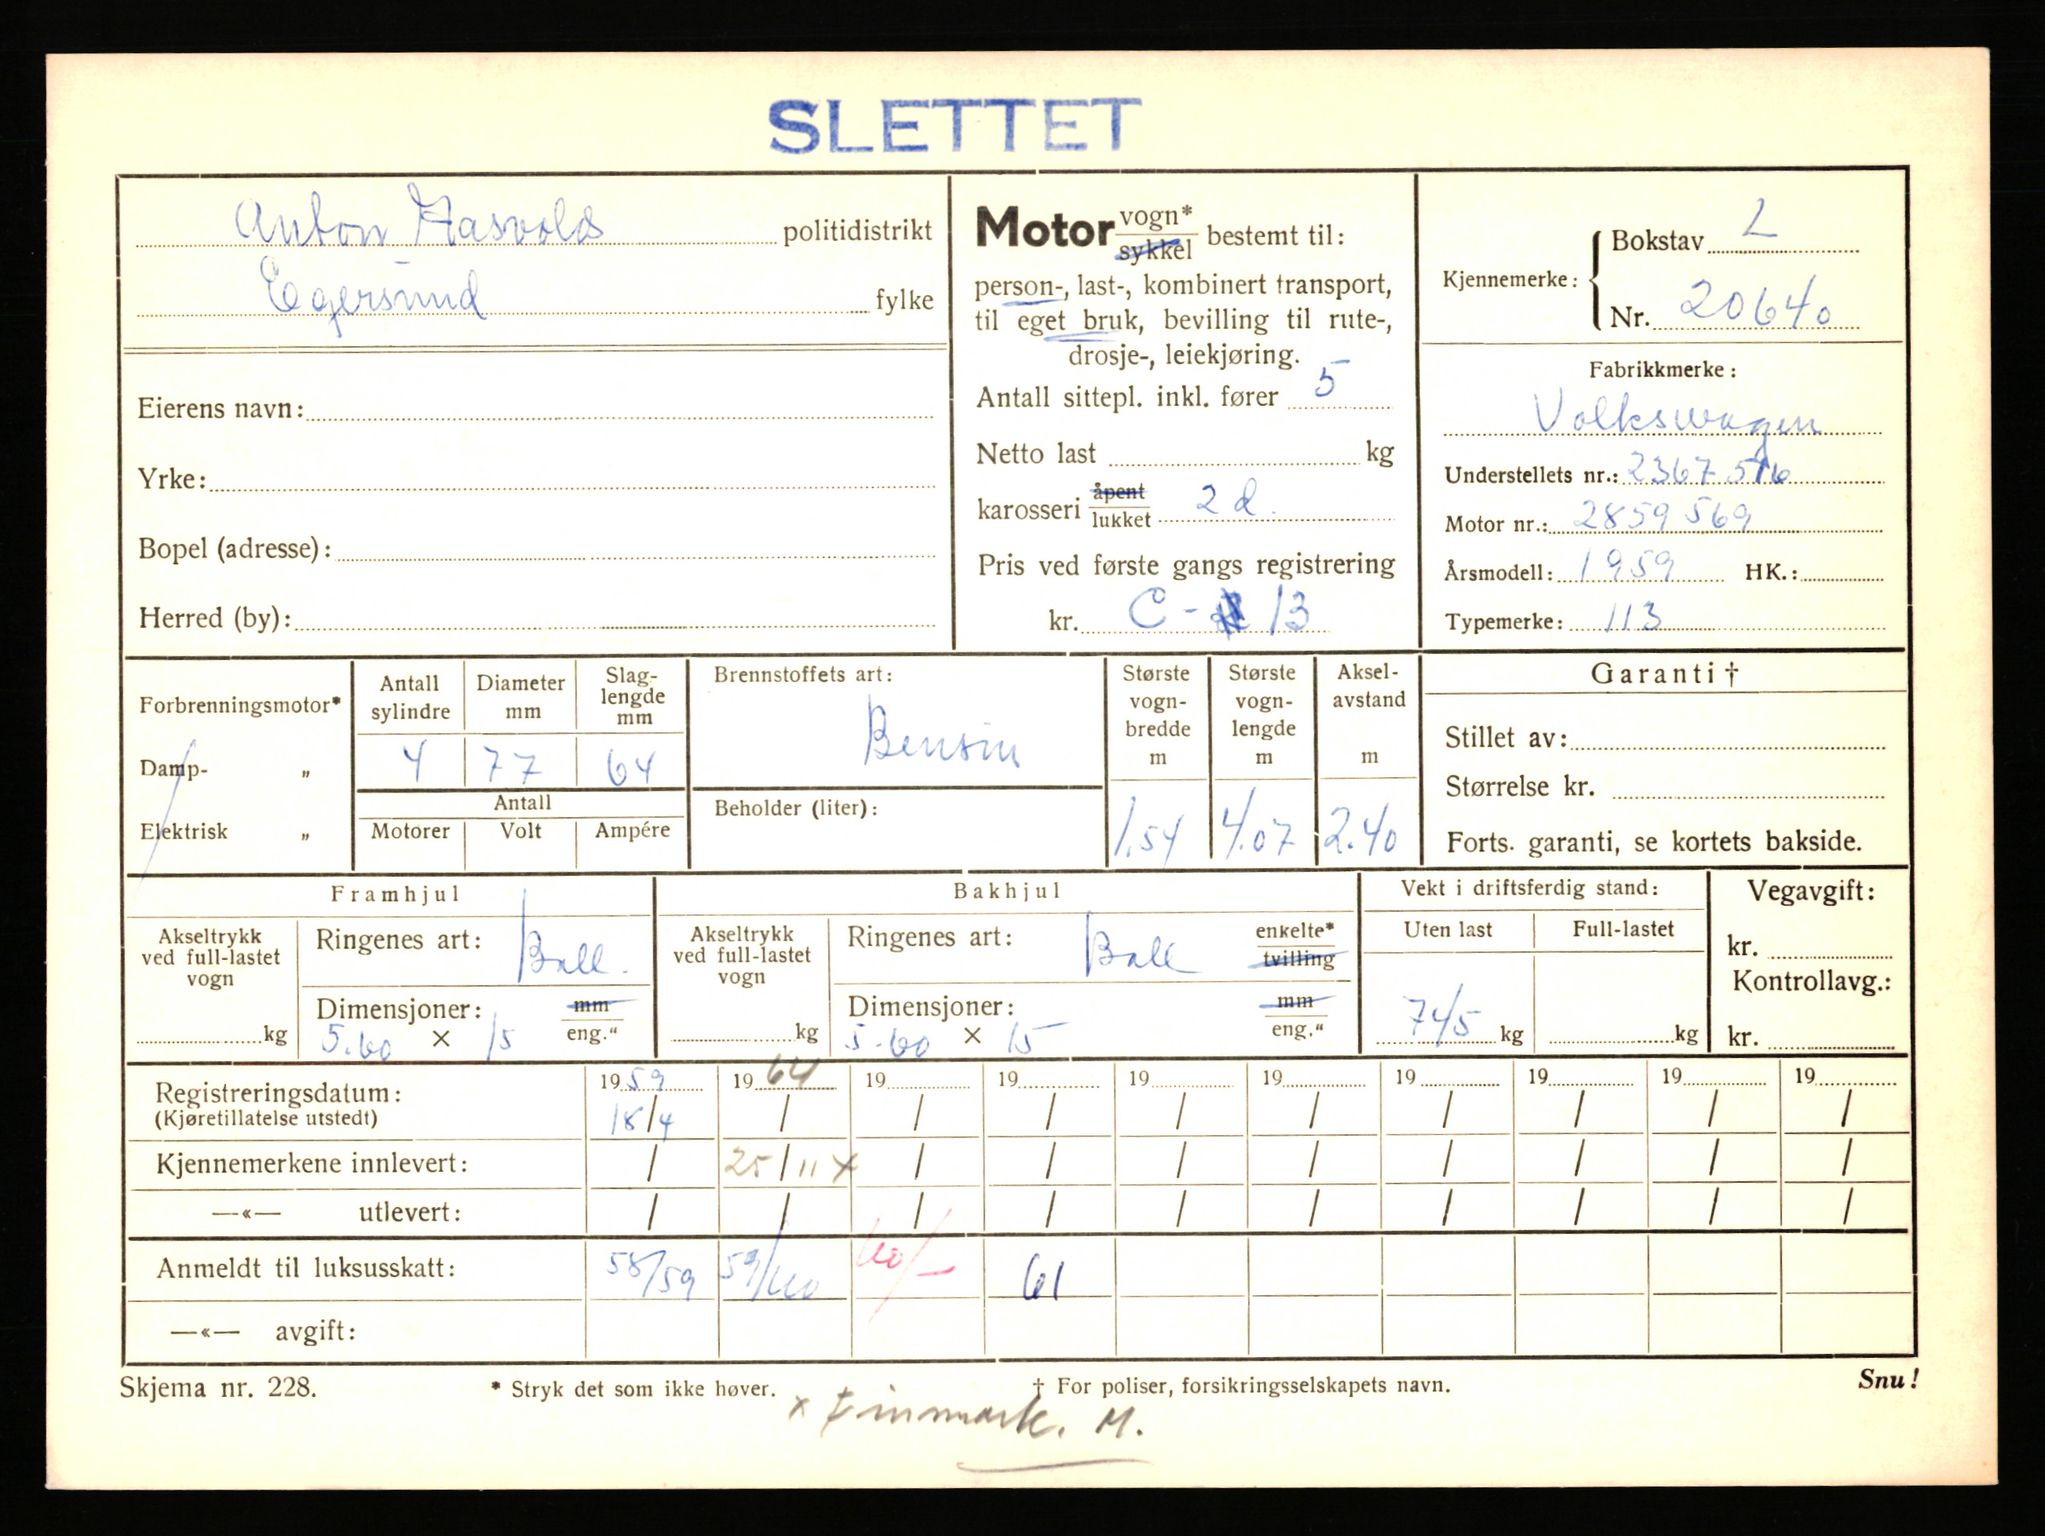 SLETTET
Anton politidistrikt
Egersund fylke
Eierens navn:
Yrke:
Bopel (adresse):
Herred (by):
Motor vogn* sykkel bestemt til:
person-, last-, kombinert transport,
til eget bruk, bevilling til rute-,
drosje-, leiekjøring.
Antall sittepl. inkl. fører 5
Netto last kg
karosseri åpent lukket 2 d.
Pris ved første gangs registrering
kr. C - 13
Kjennemerke: Bokstav L
Nr. 20640
Fabrikkmerke:
Volkswagen
Understellets nr.: 2367516
Motor nr.: 2859569
Årsmodell: 1959 HK.:
Typemerke: 113
Forbrenningsmotor*
Damp- „
Elektrisk „
Antall sylindre Diameter mm Slag-lengde mm
4 77 64
Antall
Motorer Volt Ampére
Brennstoffets art:
Bensin
Beholder (liter):
Største vogn-bredde m Største vogn-lengde m Aksel-avstand m
1.54 4.07 2.40
Garanti †
Stillet av:
Størrelse kr.
Forts. garanti, se kortets bakside.
Framhjul
Akseltrykk ved full-lastet vogn kg
Ringenes art: Ball.
Dimensjoner: mm eng."
5.60 × 15
Bakhjul
Akseltrykk ved full-lastet vogn kg
Ringenes art: Ball enkelte* tvilling
Dimensjoner: mm eng."
5.60 × 15
Vekt i driftsferdig stand:
Uten last Full-lastet
745 kg kg
Vegavgift:
kr.
Kontrollavg.:
kr.
Registreringsdatum: 1959 1964 19 19 19 19 19 19 19 19
(Kjøretillatelse utstedt) 18/4 / / / / / / / / /
Kjennemerkene innlevert: / 25/11 x / / / / / / / /
—«— utlevert: / / / / / / / / / /
Anmeldt til luksusskatt: 58/59 59/60 60/- 61
—«— avgift:
Skjema nr. 228. * Stryk det som ikke høver. † For poliser, forsikringsselskapets navn. Snu!
x Finmark. M.